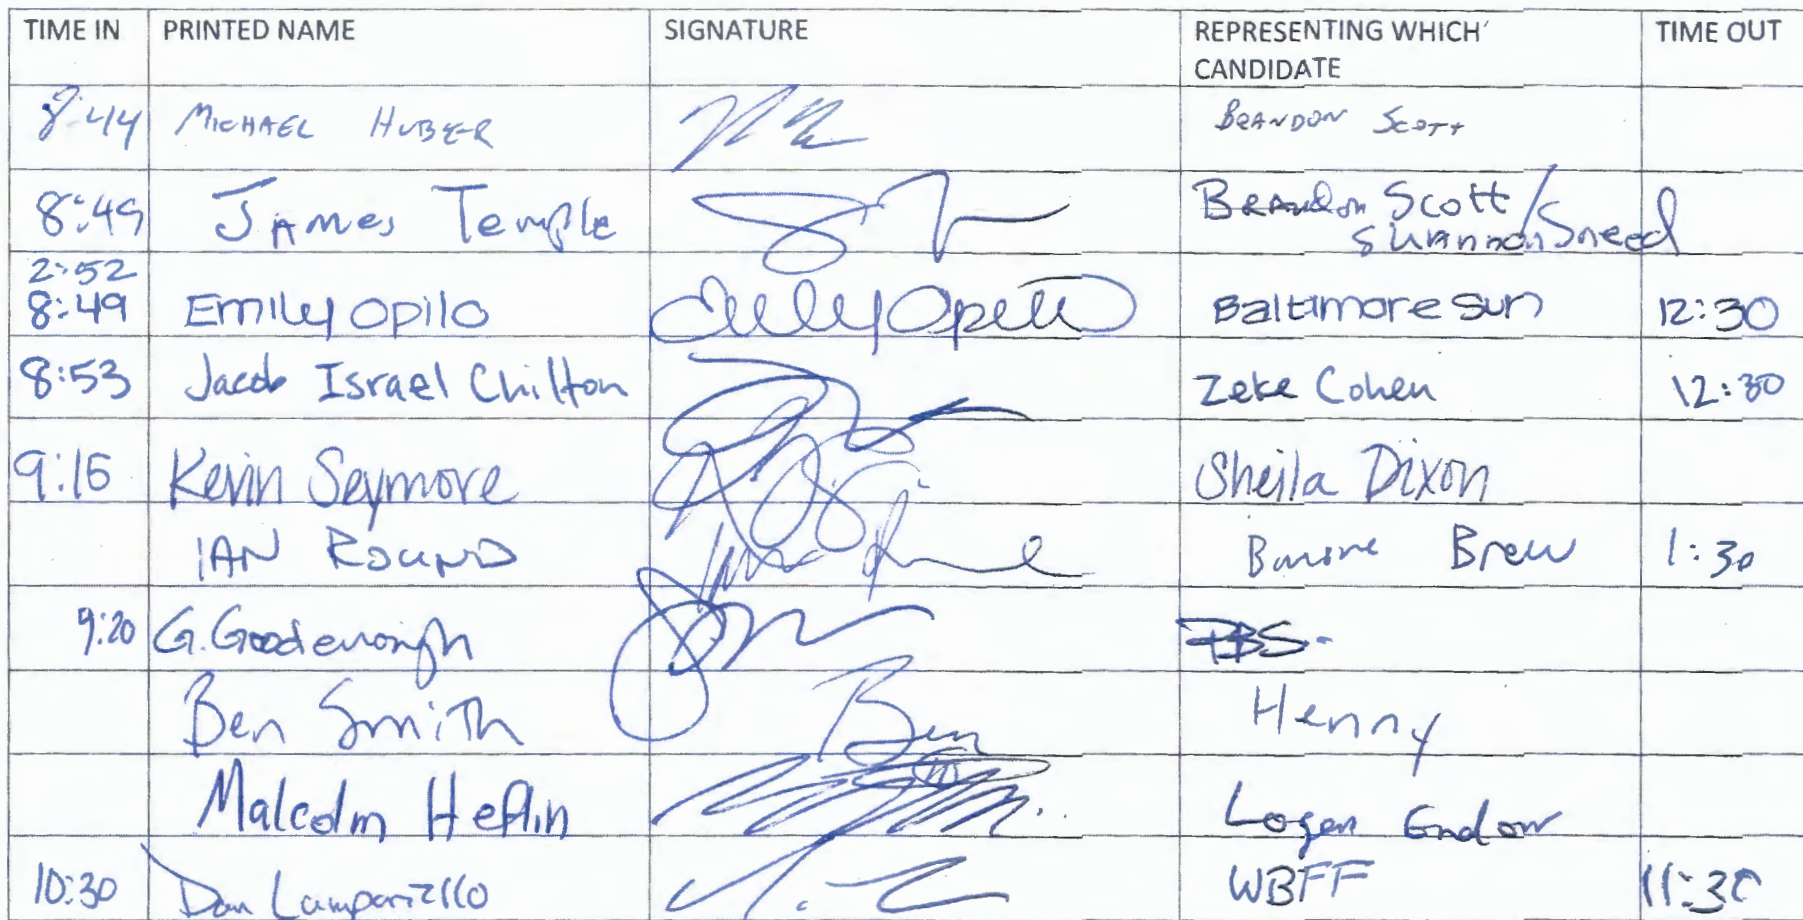 TIME IN PRINTED NAME SIGNATURE REPRESENTING WHICH CANDIDATE TIME OUT
8:44 MICHAEL HUBER BRANDON SCOTT
8:49 JAMES Temple BRANDON Scott / SHANNON Sneed
2:52
8:49 Emily Opilo Emily Opilo Baltimore Sun 12:30
8:53 Jacob Israel Chilton Zeke Cohen 12:30
9:15 Kevin Seymore Sheila Dixon
IAN ROUND Brew 1:30
9:20 G. Goodenough PBS
Ben Smith Ben Henny
Malcolm Heflin Logan Endow
10:30 Dan Lampariello WBFF 11:30